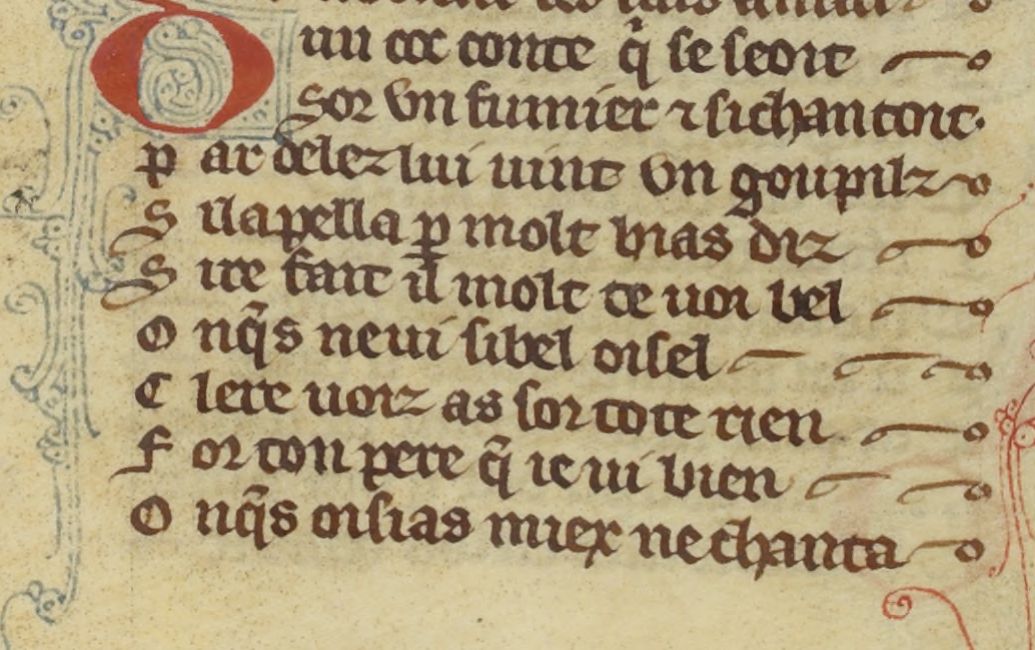 D un coc conte qͥ se seoit
Sor vn fumier ⁊ si chantoit.
P ar delez lui uint vn goupilz
S i lapella ꝑ molt bias diz
S ire fait il molt te uoi bel
O nq̃s ne ui si bel oisel
C lere uoiz as sor tote rien
F or ton pere q̃ ie ui bien
O nq̃s oisias miex ne chanta